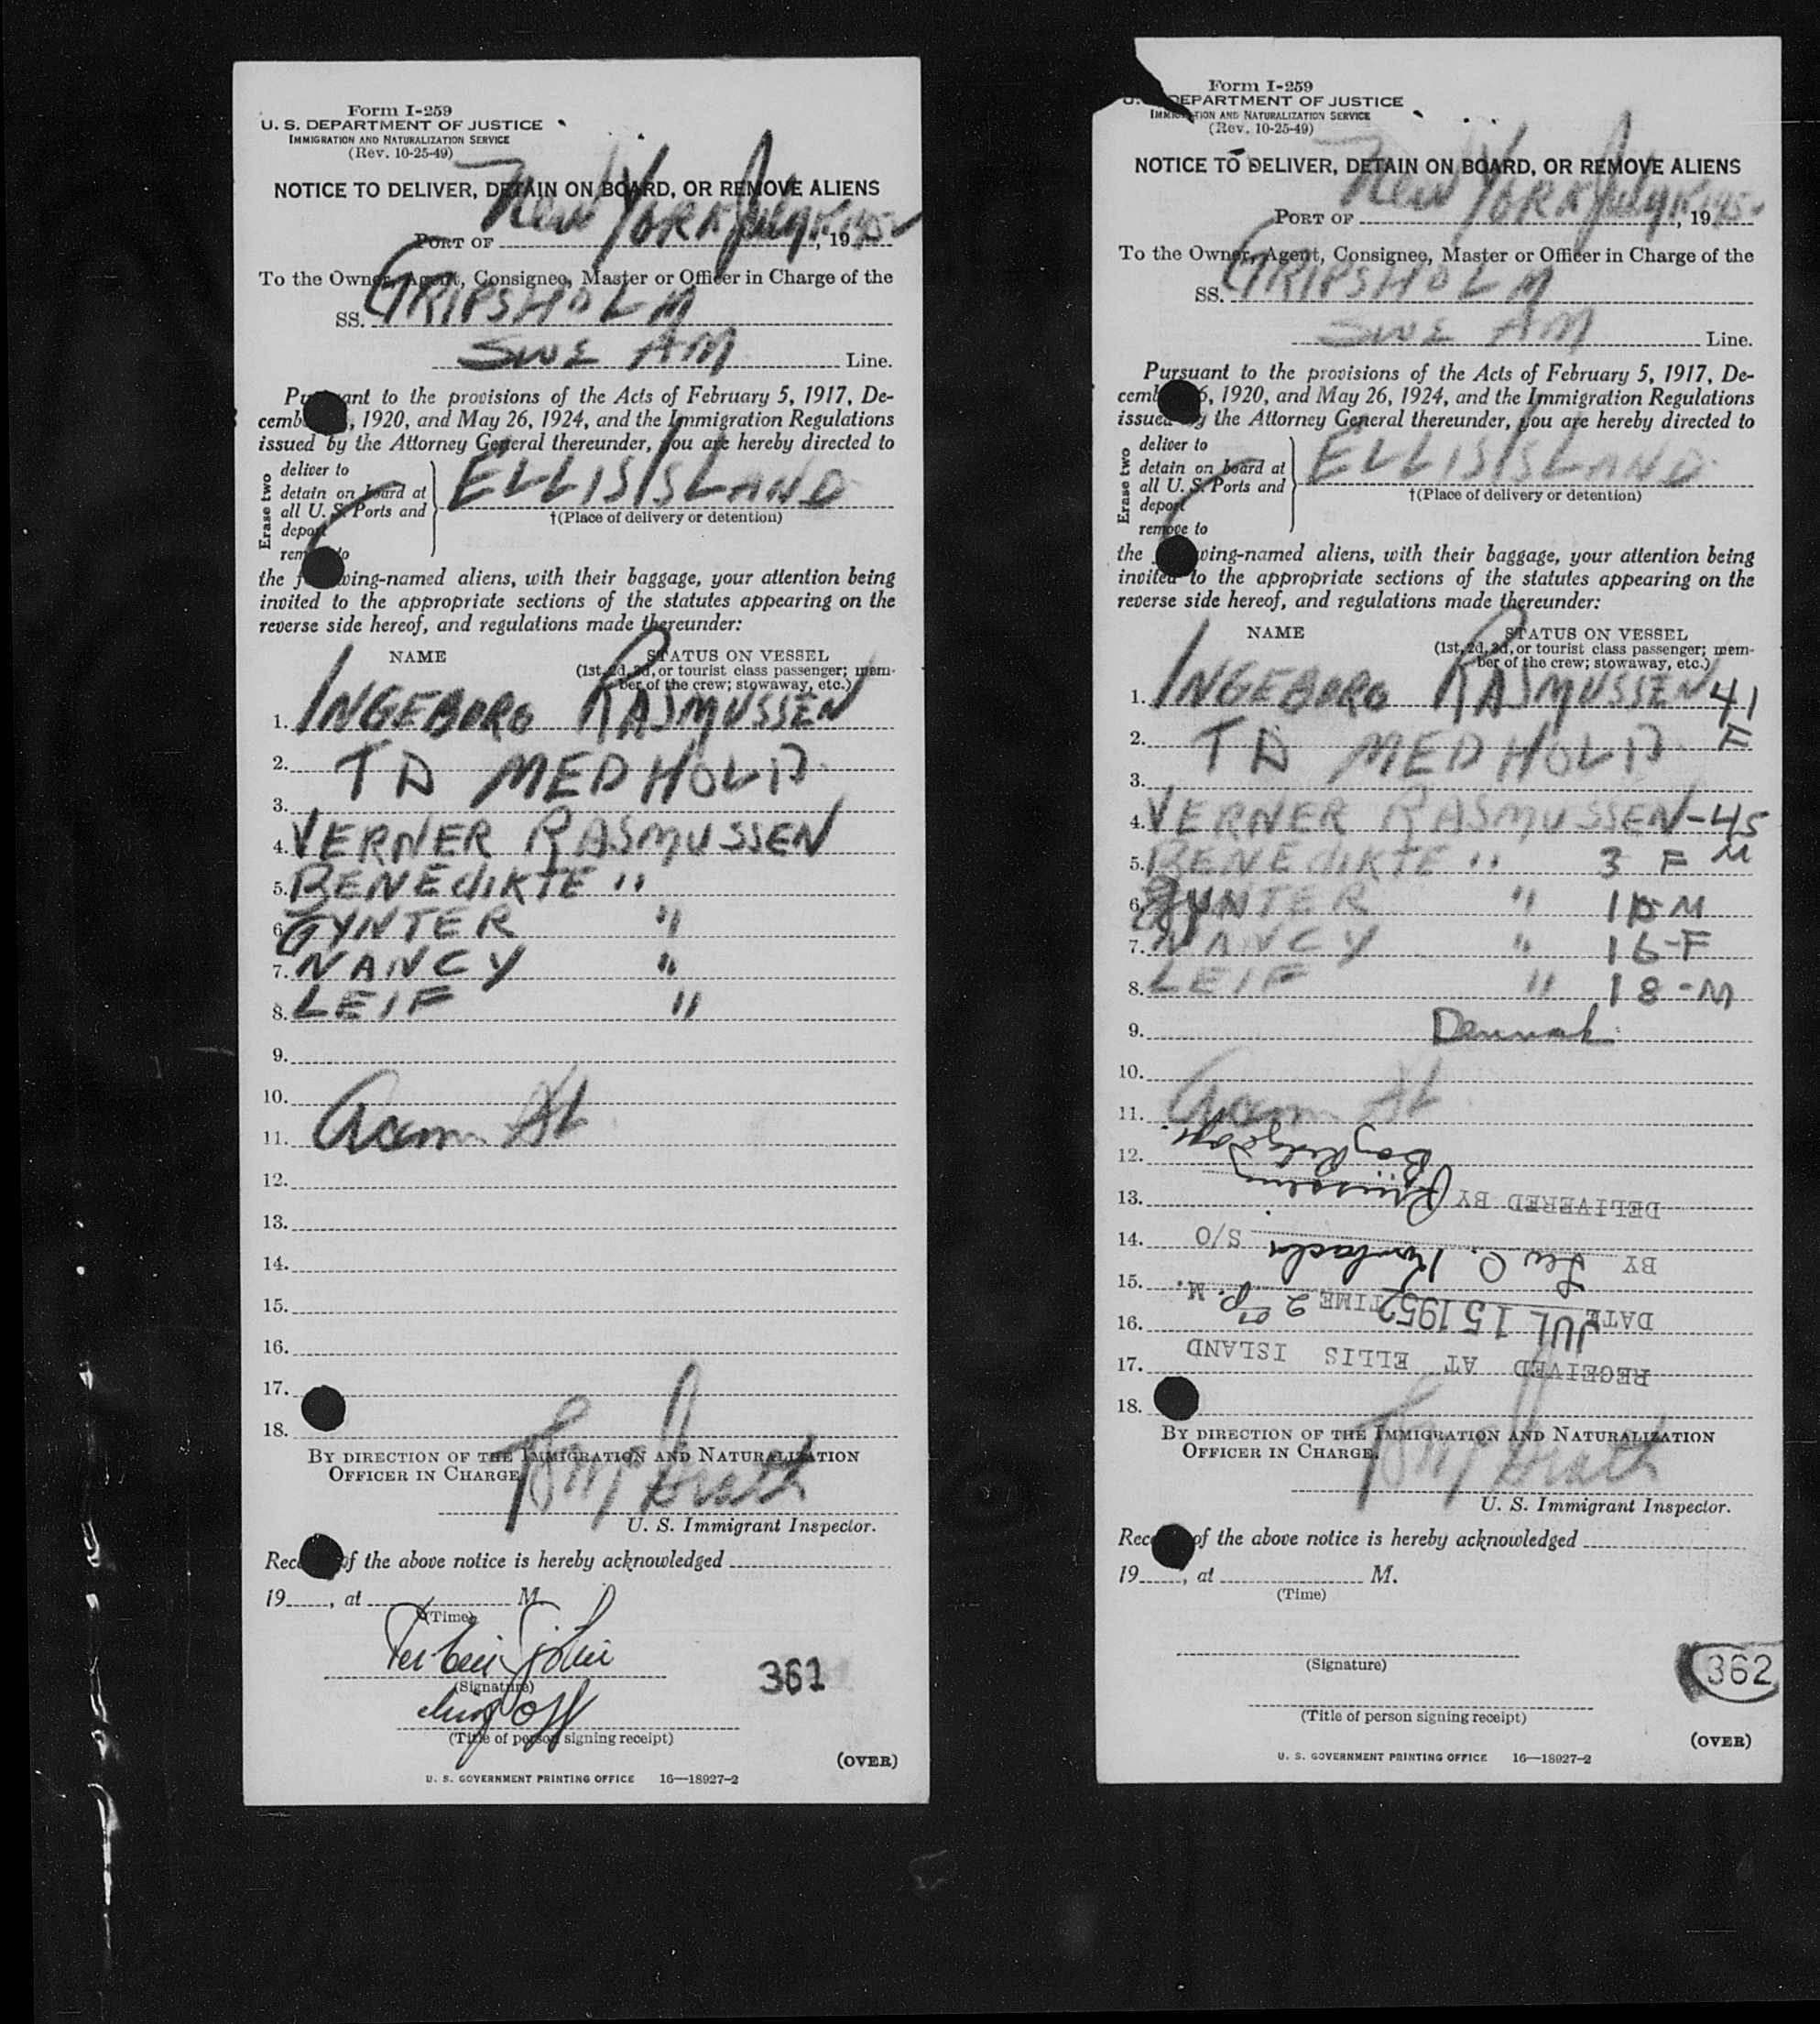 Form I-259
U. S. DEPARTMENT OF JUSTICE
IMMIGRATION AND NATURALIZATION SERVICE
(Rev. 10-25-49)
NOTICE TO DELIVER, DETAIN ON BOARD, OR REMOVE ALIENS
PORT OF New York July 15, 1952
To the Owner, Agent, Consignee, Master or Officer in Charge of the
SS. GRIPSHOLM
SWE AM Line.
Pursuant to the provisions of the Acts of February 5, 1917, De-
cemb , 1920, and May 26, 1924, and the Immigration Regulations
issued by the Attorney General thereunder, you are hereby directed to
Erase two
deliver to
detain on board at
all U. S. Ports and
deport
remove to
ELLIS ISLAND
†(Place of delivery or detention)
the following-named aliens, with their baggage, your attention being
invited to the appropriate sections of the statutes appearing on the
reverse side hereof, and regulations made thereunder:
NAME STATUS ON VESSEL
(1st, 2d, 3d, or tourist class passenger; mem-
ber of the crew; stowaway, etc.)
1. INGEBORG RASMUSSEN
2. TD MEDHOLD
3.
4. VERNER RASMUSSEN
5. BENEdIKTE "
6. GYNTER "
7. NANCY "
8. LEIF "
9.
10.
11. Accom
12.
13.
14.
15.
16.
17.
18.
BY DIRECTION OF THE IMMIGRATION AND NATURALIZATION
OFFICER IN CHARGE,
U. S. Immigrant Inspector.
Receipt of the above notice is hereby acknowledged
19 , at M.
(Time)
(Signature)
361
(Title of person signing receipt)
(OVER)
U. S. GOVERNMENT PRINTING OFFICE 16—18927-2
Form I-259
U. S. DEPARTMENT OF JUSTICE
IMMIGRATION AND NATURALIZATION SERVICE
(Rev. 10-25-49)
NOTICE TO DELIVER, DETAIN ON BOARD, OR REMOVE ALIENS
PORT OF New York July 15, 1952
To the Owner, Agent, Consignee, Master or Officer in Charge of the
SS. GRIPSHOLM
SWE AM Line.
Pursuant to the provisions of the Acts of February 5, 1917, De-
cemb 6, 1920, and May 26, 1924, and the Immigration Regulations
issued by the Attorney General thereunder, you are hereby directed to
Erase two
deliver to
detain on board at
all U. S. Ports and
deport
remove to
ELLIS ISLAND
†(Place of delivery or detention)
the following-named aliens, with their baggage, your attention being
invited to the appropriate sections of the statutes appearing on the
reverse side hereof, and regulations made thereunder:
NAME STATUS ON VESSEL
(1st, 2d, 3d, or tourist class passenger; mem-
ber of the crew; stowaway, etc.)
1. INGEBORG RASMUSSEN 41
2. TD MEDHOLD F
3.
4. VERNER RASMUSSEN - 45
5. BENEdIKTE " 3 F M
6. GYNTER " M
7. NANCY " 16-F
8. LEIF " 18-M
9. Denmark
10.
11. Accom
12.
13. DELIVERED BY
14. BY S/O
15.
16. DATE JUL 15 1952 TIME 2 P. M.
17. RECEIVED AT ELLIS ISLAND
18.
BY DIRECTION OF THE IMMIGRATION AND NATURALIZATION
OFFICER IN CHARGE,
U. S. Immigrant Inspector.
Receipt of the above notice is hereby acknowledged
19 , at M.
(Time)
(Signature)
362
(Title of person signing receipt)
(OVER)
U. S. GOVERNMENT PRINTING OFFICE 16—18927-2